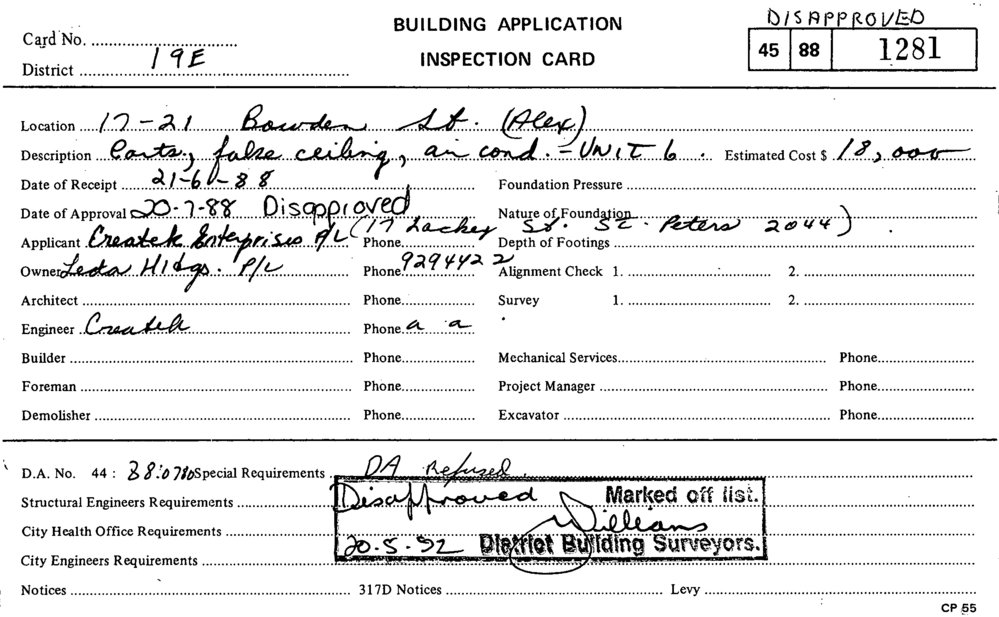 DISAPPROVED
BUILDING APPLICATION
Card No.
45 88 1281
INSPECTION CARD
District 19E
Location 17-21 Bowden St. (Alex)
Description Parts, false ceiling, air cond. - UNIT 6. Estimated Cost $ 18,000
Date of Receipt 21-6-88 Foundation Pressure
Date of Approval 20-7-88 Disapproved Nature of Foundation
Applicant Createk Enterprises P/L (17 Lackey St. St. Peters 2044) Phone Depth of Footings
Owner Leda Hldgs. P/L Phone 9294422 Alignment Check 1. 2.
Architect Phone Survey 1. 2.
Engineer Createk Phone a a
Builder Phone Mechanical Services Phone
Foreman Phone Project Manager Phone
Demolisher Phone Excavator Phone
D.A. No. 44 : 88:0780 Special Requirements DA Refused.
Structural Engineers Requirements Disapproved Marked off list.
City Health Office Requirements Williams
20.5.92 District Building Surveyors.
City Engineers Requirements
Notices 317D Notices Levy
CP 55